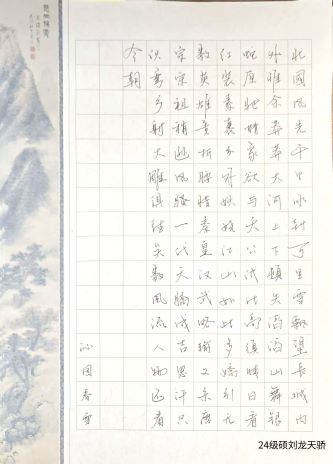 北國风光千里冰封万里雪飘望长城内
外惟余莽莽大河上下顿失滔滔山舞银
蛇原驰蜡象欲与天公试比高须晴日看
红装素裹分外妖娆江山如此多娇引无
数英雄竞折腰惜秦皇汉武略输文采唐
宗宋祖稍逊风骚一代天骄成吉思汗只
识弯弓射大雕俱往矣数风流人物还看
今朝
沁园春雪
24级硕刘龙天骄